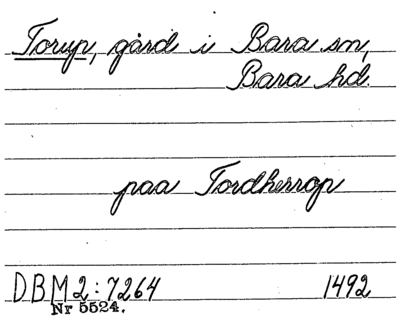 Torup, gård i Bara sn,
Bara hd.
paa Tordherrop
DBM 2:7264 1492
Nr 5524.